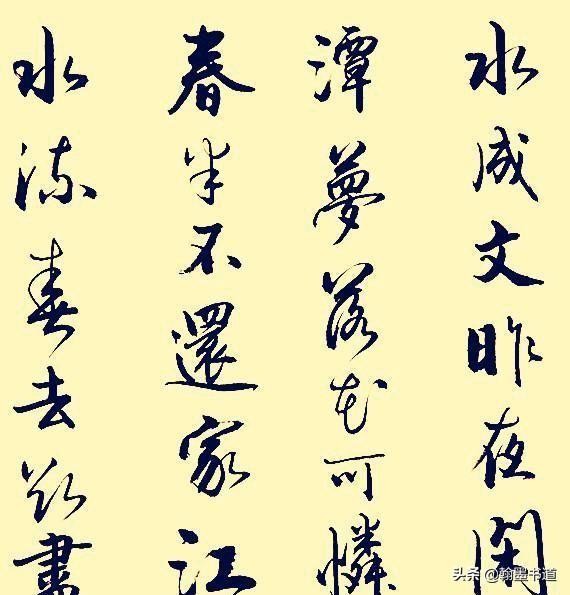 水成文昨夜閑
潭夢落花可憐
春半不還家江
水流春去欲盡
头条 @翰墨书道